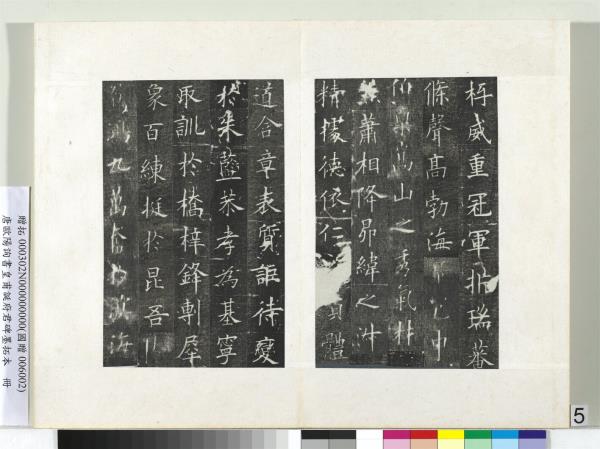 威重冠軍析瑞蕃
條聲高勃海
伯稟嵩山之秀氣材
蕭相降昴緯之
精據德依仁體
道含章表質詎待變
於朱藍恭孝為基寧
取訓於橋梓鋒剸犀
象百練挺於昆吾
九萬奮於溟海
贈拓 000302N000000000(國贈 006002)
唐歐陽詢書皇甫誕府君碑墨拓本 冊
5